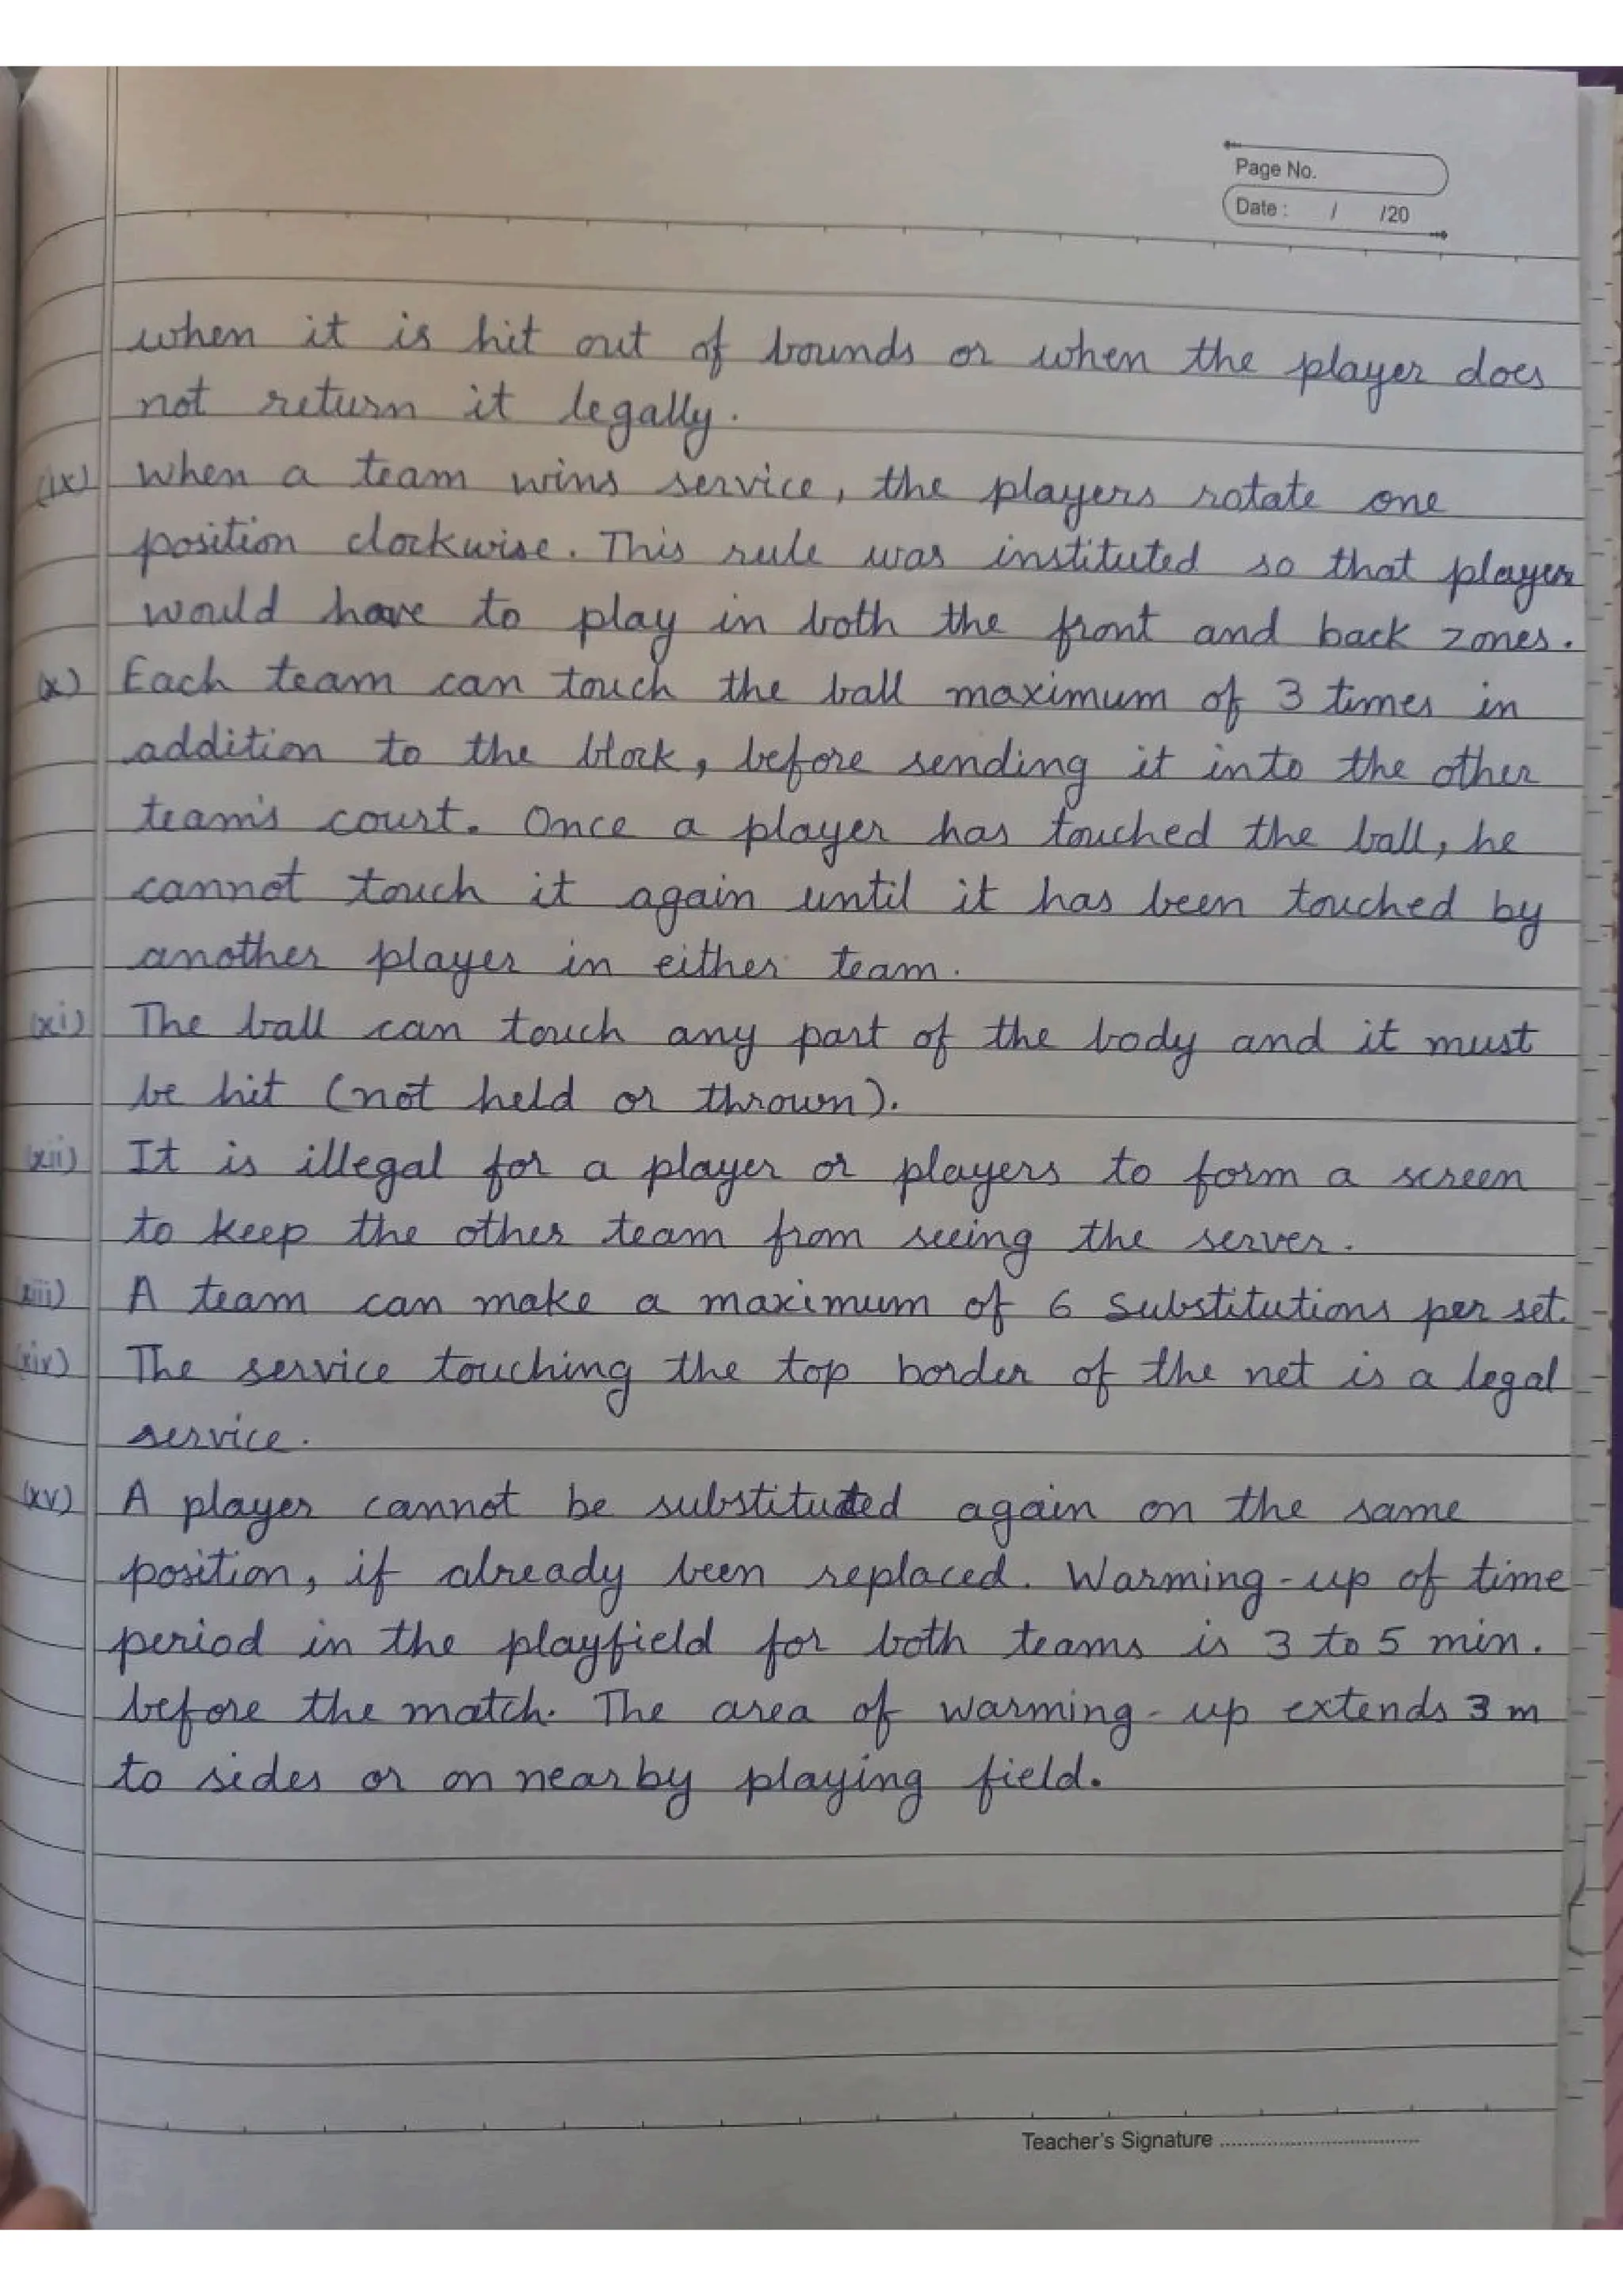 Page No.
Date : / /20
when it is hit out of bounds or when the player does
not return it legally.
(ix) When a team wins service, the players rotate one
position clockwise. This rule was instituted so that player
would have to play in both the front and back zones.
(x) Each team can touch the ball maximum of 3 times in
addition to the block, before sending it into the other
team's court. Once a player has touched the ball, he
cannot touch it again until it has been touched by
another player in either team.
(xi) The ball can touch any part of the body and it must
be hit (not held or thrown).
(xii) It is illegal for a player or players to form a screen
to keep the other team from seeing the server.
(xiii) A team can make a maximum of 6 substitutions per set.
(xiv) The service touching the top border of the net is a legal
service.
(xv) A player cannot be substituted again on the same
position, if already been replaced. Warming-up of time
period in the playfield for both teams is 3 to 5 min.
before the match. The area of warming-up extends 3 m
to sides or on nearby playing field.
Teacher's Signature